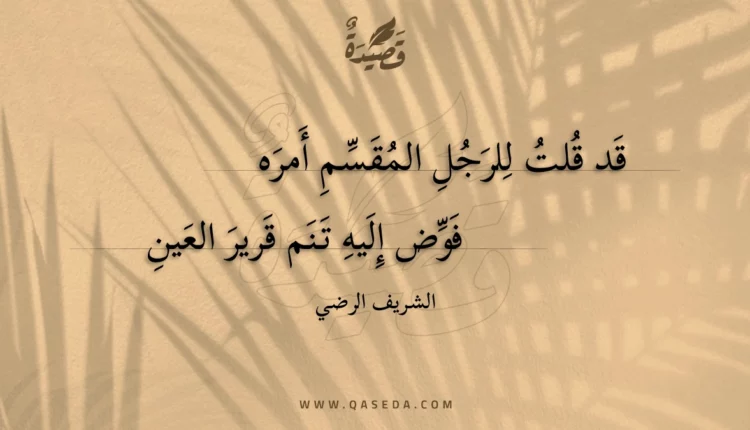 قَصِيْدَةٌ
قَد قُلتُ لِلرَجُلِ المُقَسِّمِ أَمرَه
فَوِّض إِلَيهِ تَنَم قَريرَ العَينِ
الشريف الرضي
WWW.QASEDA.COM